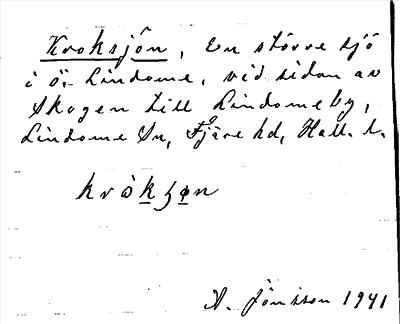 Kroksjön, En större sjö
i ö. Lindome, vid sidan av
Skogen till Lindomeby,
Lindome Sn, Fjäre hd, Hall. l.
kròkʃøn
A. Jönsson 1941